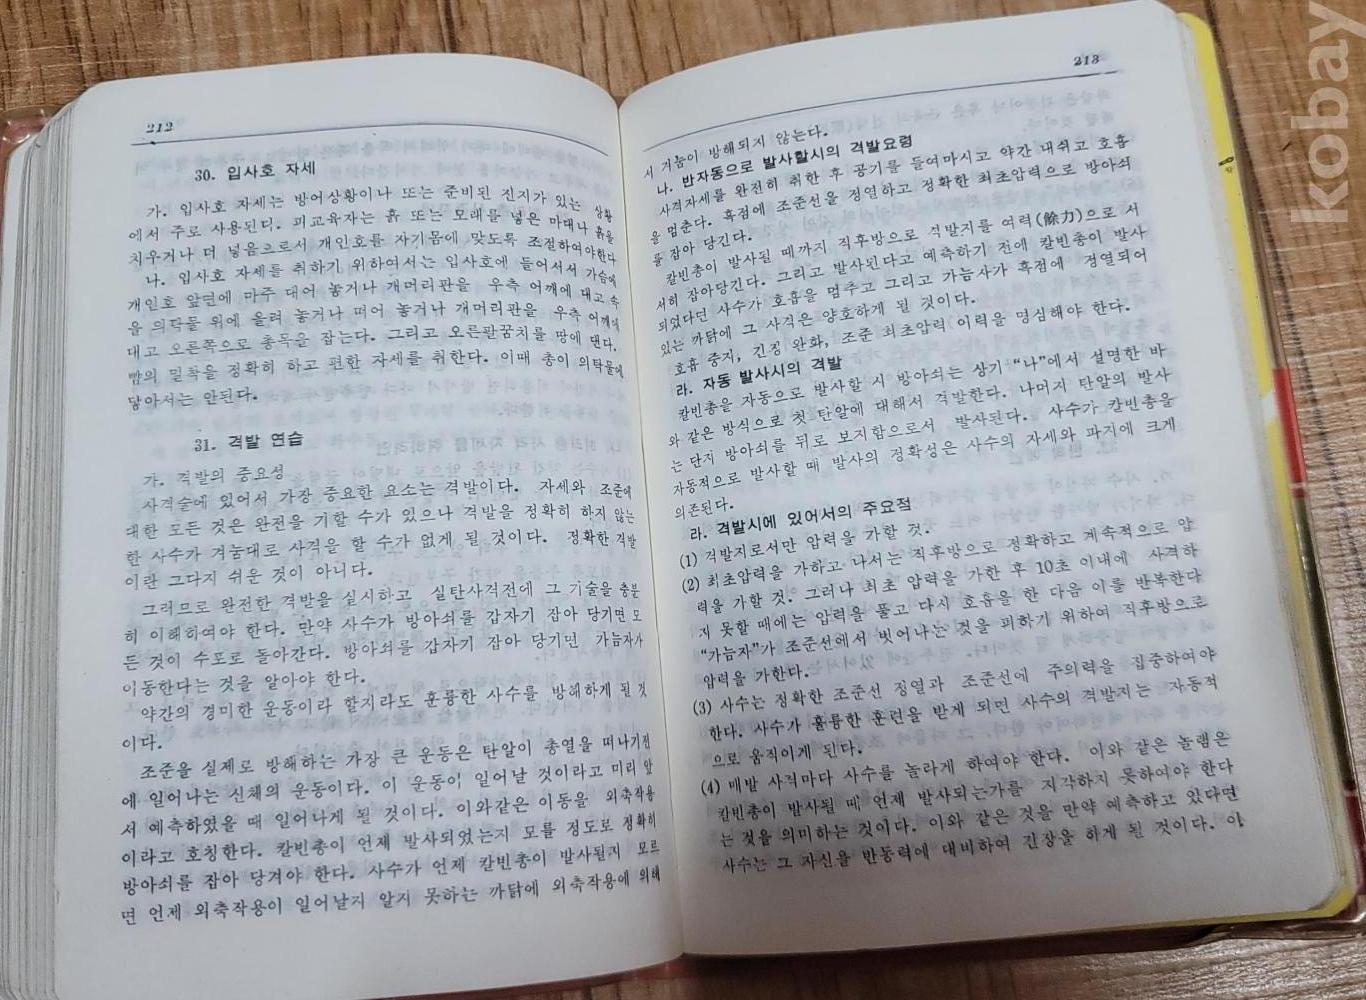 212
30. 입사호 자세
가. 입사호 자세는 방어상황이나 또는 준비된 진지가 있는 상황
에서 주로 사용된다. 피교육자는 흙 또는 모래를 넣은 마대나 흙을
치우거나 더 넣음으로서 개인호를 자기몸에 맞도록 조절하여야한다
나. 입사호 자세를 취하기 위하여서는 입사호에 들어서서 가슴에
개인호 앞면에 마주 대어 놓거나 개머리판을 우측 어깨에 대고 속
음 의탁물 위에 올려 놓거나 떠어 놓거나 개머리판을 우측 어깨에
대고 오른쪽으로 총목을 잡는다. 그리고 오른팔꿈치를 땅에 댄다.
뺨의 밀착을 정확히 하고 편한 자세를 취한다. 이때 총이 의탁물에
닿아서는 안된다.
31. 격발 연습
가. 격발의 중요성
사격술에 있어서 가장 중요한 요소는 격발이다. 자세와 조준에
대한 모든 것은 완전을 기할 수가 있으나 격발을 정확히 하지 않는
한 사수가 겨눔대로 사격을 할 수가 없게 될 것이다. 정확한 격발
이란 그다지 쉬운 것이 아니다.
그러므로 완전한 격발을 실시하고 실탄사격전에 그 기술을 충분
히 이해하여야 한다. 만약 사수가 방아쇠를 갑자기 잡아 당기면 모
든 것이 수포로 돌아간다. 방아쇠를 갑자기 잡아 당기면 가늠자가
이동한다는 것을 알아야 한다.
약간의 경미한 운동이라 할지라도 훌륭한 사수를 방해하게 될 것
이다.
조준을 실제로 방해하는 가장 큰 운동은 탄알이 총열을 떠나기전
에 일어나는 신체의 운동이다. 이 운동이 일어날 것이라고 미리 앞
서 예측하였을 때 일어나게 될 것이다. 이와같은 이동을 외축작용
이라고 호칭한다. 칼빈총이 언제 발사되었는지 모를 정도로 정확히
방아쇠를 잡아 당겨야 한다. 사수가 언제 칼빈총이 발사될지 모르
면 언제 외축작용이 일어날지 알지 못하는 까닭에 외축작용에 의해
213
서 겨눔이 방해되지 않는다.
나. 반자동으로 발사할시의 격발요령
사격자세를 완전히 취한 후 공기를 들여마시고 약간 내쉬고 호흡
을 멈춘다. 흑점에 조준선을 정열하고 정확한 최초압력으로 방아쇠
를 잡아 당긴다.
칼빈총이 발사될 때까지 직후방으로 격발지를 여력(餘力)으로 서
서히 잡아당긴다. 그리고 발사된다고 예측하기 전에 칼빈총이 발사
되었다면 사수가 호흡을 멈추고 그리고 가늠사가 흑점에 정열되어
있는 까닭에 그 사격은 양호하게 될 것이다.
호흡 중지, 긴장 완화, 조준 최초압력 이력을 명심해야 한다.
라. 자동 발사시의 격발
칼빈총을 자동으로 발사할 시 방아쇠는 상기 “나”에서 설명한 바
와 같은 방식으로 첫 탄알에 대해서 격발한다. 나머지 탄알의 발사
는 단지 방아쇠를 뒤로 보지함으로서 발사된다. 사수가 칼빈총을
자동적으로 발사할 때 발사의 정확성은 사수의 자세와 파지에 크게
의존된다.
라. 격발시에 있어서의 주요점
(1) 격발지로서만 압력을 가할 것.
(2) 최초압력을 가하고 나서는 직후방으로 정확하고 계속적으로 압
력을 가할 것. 그러나 최초 압력을 가한 후 10초 이내에 사격하
지 못할 때에는 압력을 풀고 다시 호흡을 한 다음 이를 반복한다
“가늠자”가 조준선에서 벗어나는 것을 피하기 위하여 직후방으로
압력을 가한다.
(3) 사수는 정확한 조준선 정열과 조준선에 주의력을 집중하여야
한다. 사수가 훌륭한 훈련을 받게 되면 사수의 격발지는 자동적
으로 움직이게 된다.
(4) 매발 사격마다 사수를 놀라게 하여야 한다. 이와 같은 놀램은
칼빈총이 발사될 때 언제 발사되는가를 지각하지 못하여야 한다
는 것을 의미하는 것이다. 이와 같은 것을 만약 예측하고 있다면
사수는 그 자신을 반동력에 대비하여 긴장을 하게 될 것이다. 이
kobay